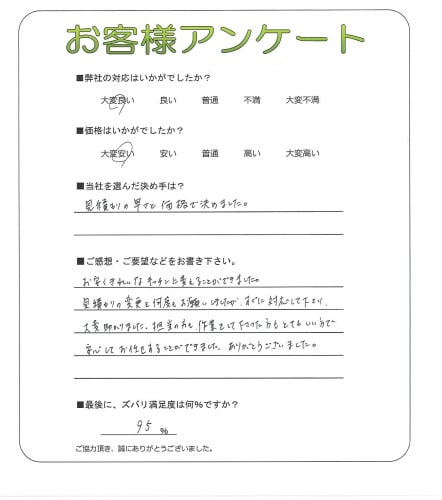 お客様アンケート
■弊社の対応はいかがでしたか？
大変良い 良い 普通 不満 大変不満
■価格はいかがでしたか？
大変安い 安い 普通 高い 大変高い
■当社を選んだ決め手は？
見積もりの早さと価格で決めました。
■ご感想・ご要望などをお書き下さい。
お安くきれいなキッチンに変えることができました。
見積もりの変更を何度もお願いしましたが、すぐに対応して下さり、
大変助かりました。担当の方も、作業をして下さった方もとてもいい方で
安心してお任せすることができました。ありがとうございました。
■最後に、ズバリ満足度は何%ですか？
95 %
ご協力頂き、誠にありがとうございました。